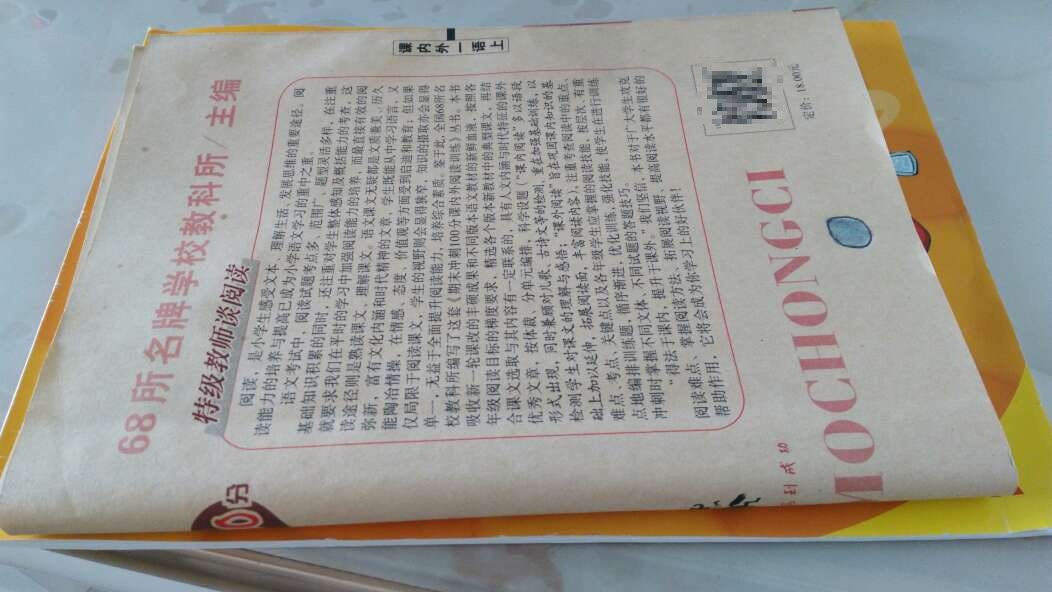 68所名牌学校教科所/主编
特级教师谈阅读
阅读，是小学生感受文本、理解生活、发展思维的重要途径。阅
读能力的培养与提高已成为小学语文学习的重中之重。
语文考试中，阅读试题考点多、范围广、题型灵活多样，在注重
基础知识积累的同时，还注重对学生整体感知及概括能力的考查，这
就要求我们在平时的学习中加强阅读能力的培养，而最直接有效的阅
读途径则是熟读课文、理解课文。语文课文无疑都是文质兼美、历久
弥新，富有文化内涵和时代精神的文章，学生既能从中学习语言，又
能陶冶情操，在情感、态度、价值观等方面受到启迪和教育；但如果
仅局限于阅读课文，学生的视野则会显得狭窄，知识的摄取亦会显得
单一，无益于全面提升阅读能力，培养综合素质。鉴于此，全国68所名
校教科所编写了这套《期末冲刺100分课内外阅读训练》丛书。本书
吸收新一轮课改的丰硕成果和不同版本语文教材的新鲜血液，按照各
年级阅读目标的梯度要求，精选各个版本新教材中的典型课文，再结
合课文选取与其内容有一定联系的，具有人文内涵与时代特征的课外
优秀文章，按体裁、分单元编排，科学设题（“课内阅读”多以语段
形式出现，同时兼顾对儿歌、古诗文等的检测，重在加强基础训练，以
检测学生对课文的理解与感悟；“课外阅读”旨在巩固课内知识的基
础上加以延伸，拓展阅读面，丰富阅读内容），注重考查阅读中的重点、
难点、考点、关键点以及各年级学生应掌握的阅读技能，按层次、有重
点地编排训练题，循序渐进，优化训练，强化技能，使学生在进行训练
冲刺时掌握不同文体、不同试题的答题技巧。
“得法于课内，提升于课外。”我们坚信，本书对于广大学生攻克
阅读难点、掌握阅读方法、拓宽阅读视野、提高阅读水平都有很好的
帮助作用，它将会成为你学习上的好伙伴！
课内外一语上
定价：18.00元
0分
到成功
MOCHONGCI